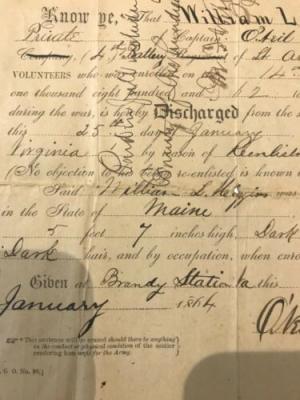 Know ye, That William L
Private of Captain O'Neil
Company, (4th Battery Regiment of Lt. A
VOLUNTEERS who was enrolled on the 14
one thousand eight hundred and 62 to
during the war, is hereby Discharged from the
this 25th day of January
Virginia by reason of Reenlist
(No objection to his being re-enlisted is known
Said William L.
in the State of Maine
5 feet 7 inches high, Dark
Dark hair, and by occupation, when enro
Given at Brandy Station Va this
January 1864
☞ *This sentence will be erased should there be anything
in the conduct or physical condition of the soldier
rendering him unfit for the Army.
G. O. No. 99.]